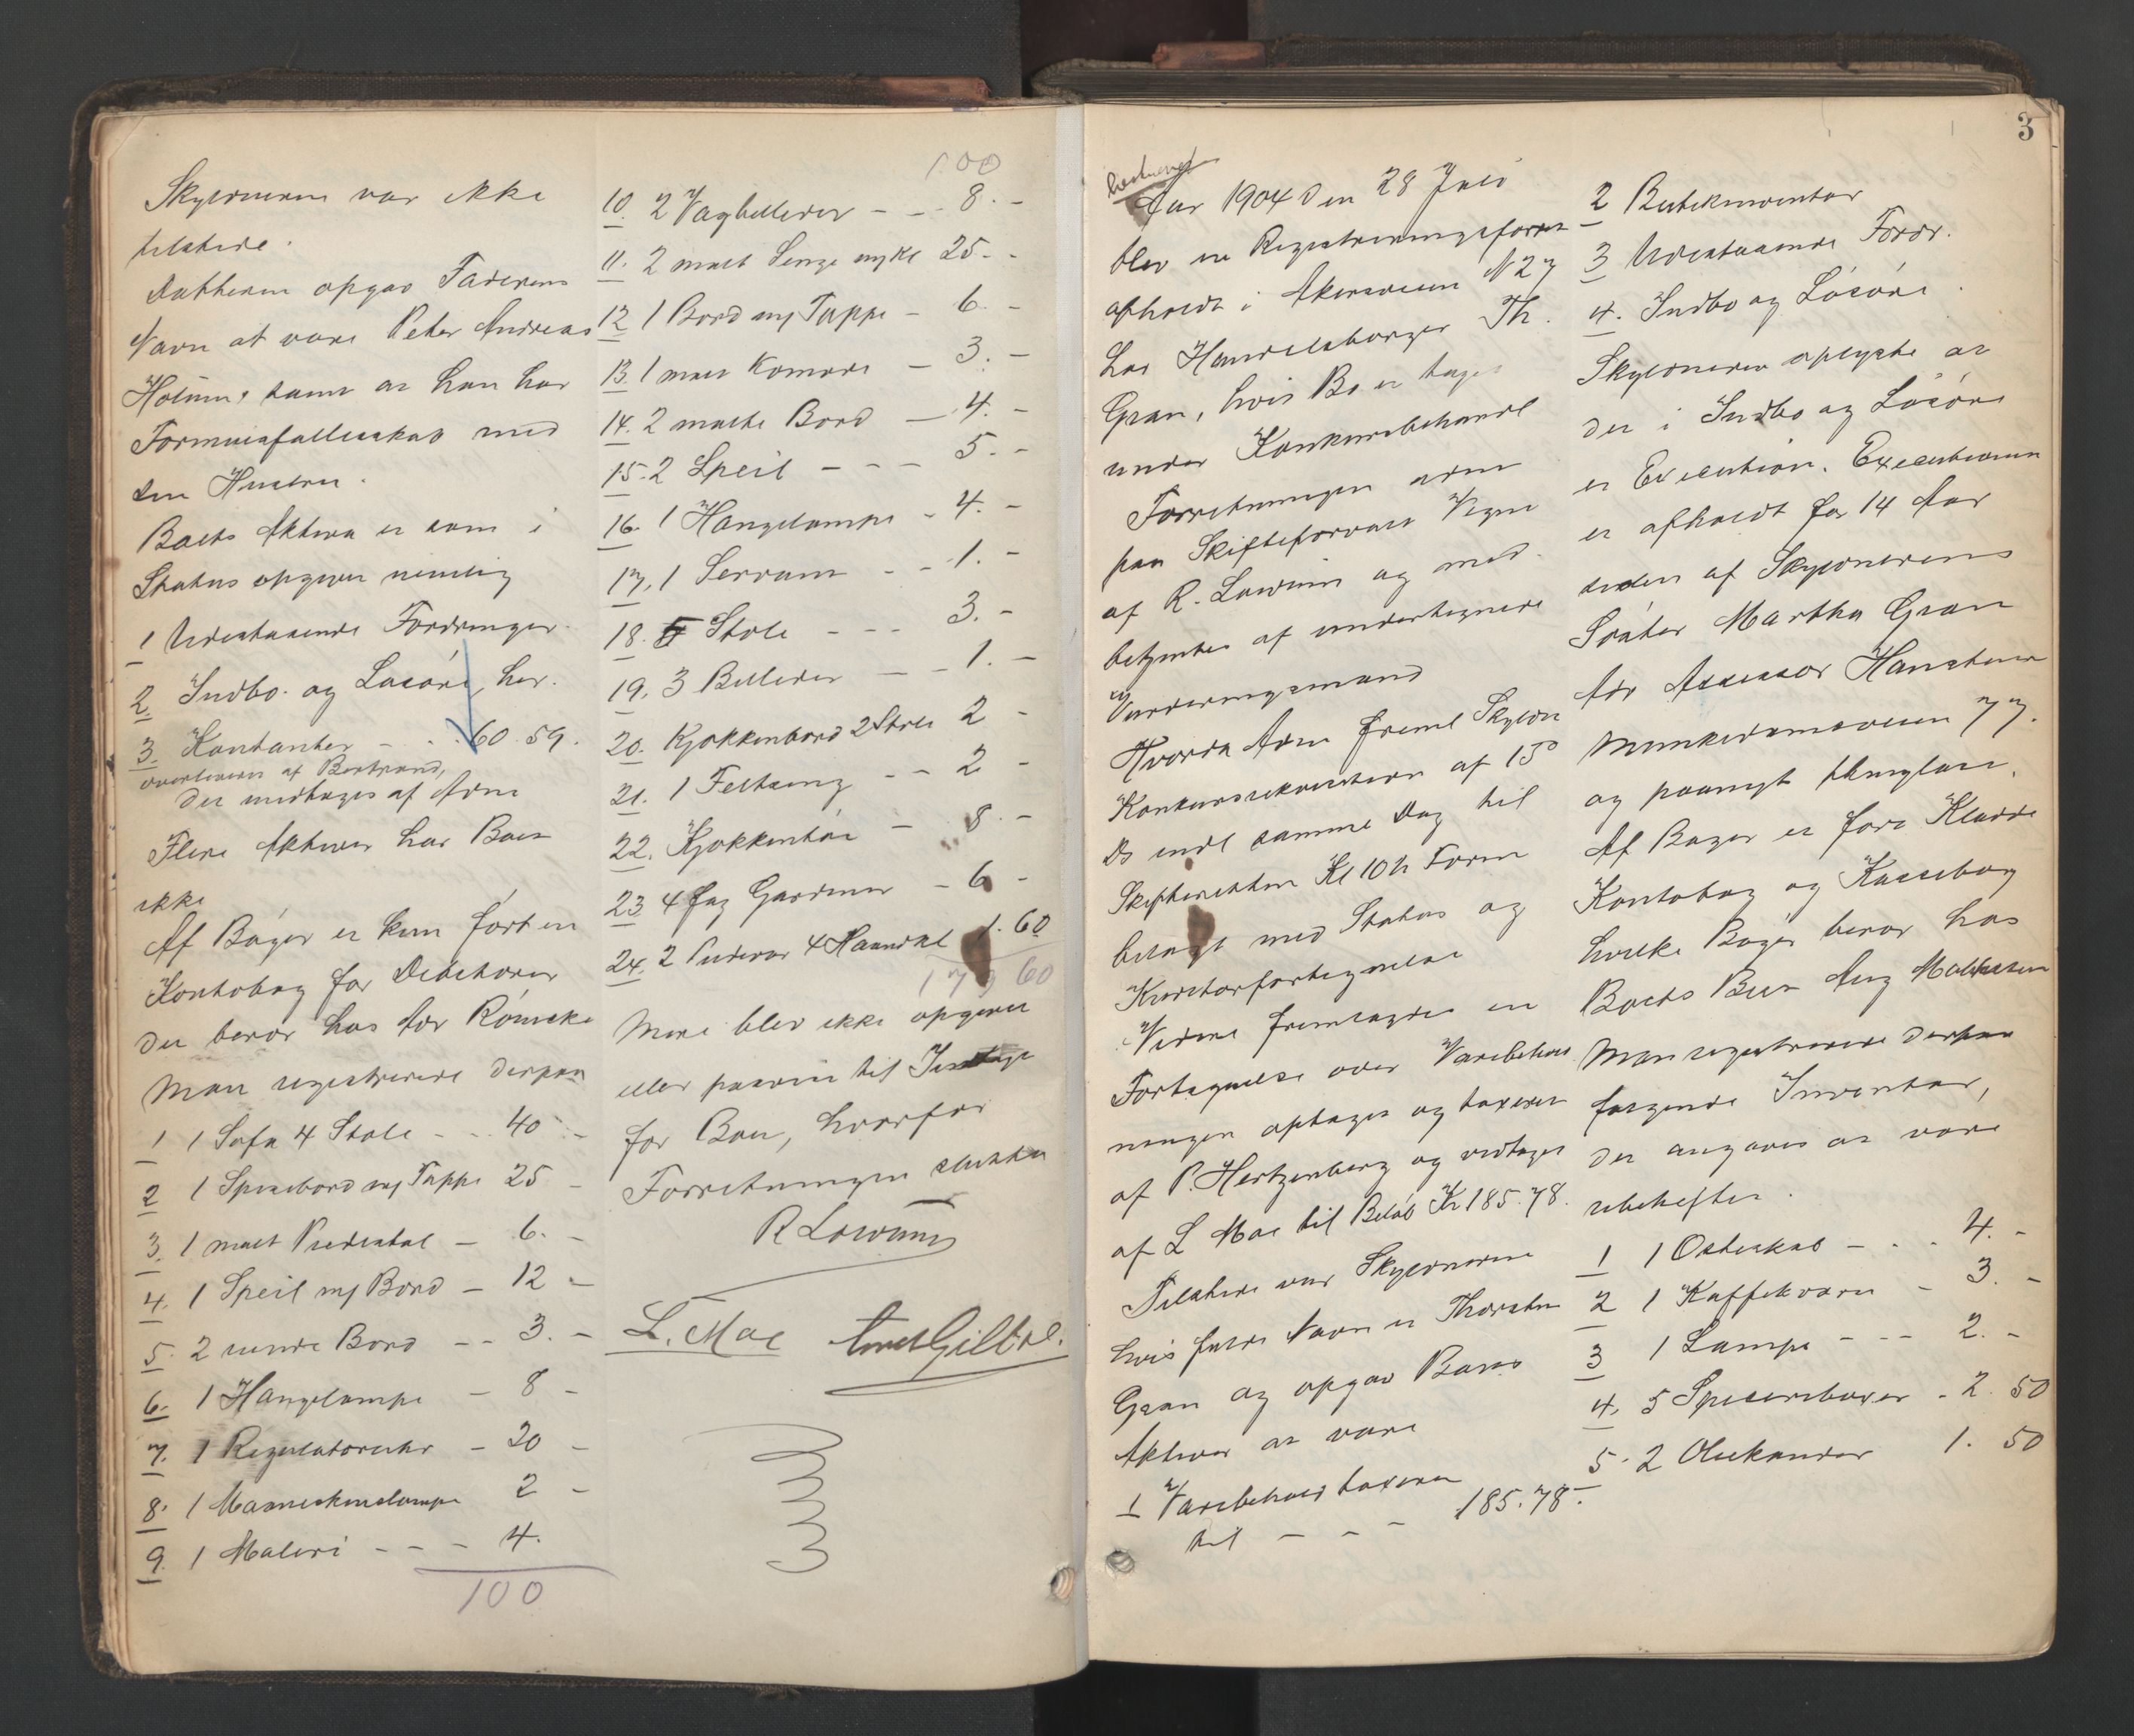 Skyldneren var ikke
tilstede.
Datteren opgav Faderens
Navn at være Peter Andreas
Holum, samt at han har
Formuesfællesskab med
sin Hustru.
Boets Aktiva er som i
Status opgiven nemlig
1 Udestaaende Fordringer.
2. Indbo og Løsøre, her.
3. Kontanter - - - 60.59.
overleveret af Bertrand,
der medtages af Adm
Flere Aktiver har Boet
ikke
Af Bøger er kun ført en
Kontobog for Debitorer
der beror hos Adv Römcke
Man registrerede derpaa
1 1 Sofa 4 Stole - - 40 -
2 1 Spisebord m/ Tæppe 25 -
3. 1 malt Piedestal - 6. -
4. 1 Speil m/ Bord - 12 -
5. 2 runde Bord - - 3. -
6. 1 Hængelampe - 8 -
7. 1 Regulatoruhr - 20 -
8. 1 Maaneskinslampe 2 -
9. 1 Maleri - - - 4.
100
100
10. 2 Vægbilleder - - 8. -
11. 2 malt Senge m/ Kl 25 - -
12 1 Bord m/ Tæppe - 6. -
13. 1 malt Komode - 3. -
14. 2 malte Bord - 4. -
15. 2 Speil - - - 5. -
16. 1 Hængelampe - 4. -
17. 1 Servant - - 1. -
18. Stole - - - 3. -
19. 3 Billeder - - 1. -
20. Kjøkkenbord 2 Stole 2 -
21. 1 Feltseng - - 2 -
22. Kjøkkentøi - 8. -
23 4 fag Gardiner - 6 -
24. 2 Puder 4 Haandkl 1.60
60
Mere blev ikke opgivet
eller paavist til Indtægt
for Boet, hvorfor
Forretningen sluttet
R Lowum
L. Moe
3
Aar 1904 den 28 Juli
blev en Registreringsforretn
afholdt i Akersveien N 27
hos Handelsborger Th.
Gran, hvis Bo er taget
under Konkursbehandl
Forretningen adm
paa Skifteforvalt Vegne
af R. Lowum og med-
betjentes af undertegnede
Vurderingsmænd
Hvorda Adm freml Skyldn
Konkursrekvisition af 15
ds indl samme Dag til
Skifteretten Kl 10½ Form
belagt med Status og
Kreditorfortegnelse
Videre fremlagdes en
Fortegnelse over Varebehold
ningen optaget og taxeret
af P. Hertzenberg og vedtaget
af L Moe til Beløb Kr 185.78.
Tilstede var Skyldneren
hvis fulde Navn er Thorsten
Gran og opgav Boets
Aktiver at være
1 Varebehold taxeret
til - - - 185.78.
2 Butikinventar
3 Udestaaende Fordr.
4. Indbo og Løsøre.
Skyldneren oplyste at
der i Indbo og Løsøre
er Execution. Executionen
er afholdt for 14 Aar
siden af Skyldnerens
Søster Martha Gran
Adr Assessor Hansteen
Munkedamsveien 77.
og paany
Af Bøger er ført Kladde
Kontobog og Kassebog
hvilke Bøger beror hos
Boets Best Aug
Man registrerede derpaa
følgende Inventar,
der angaves at være
ubehæftet.
1 1 Osteskab - - - 4. -
2 1 Kaffekværn - 3. -
3 1 Lampe - - - 2. -
4. 5 Spicerebøxer - 2.50
5. 2 Oliekander 1.50